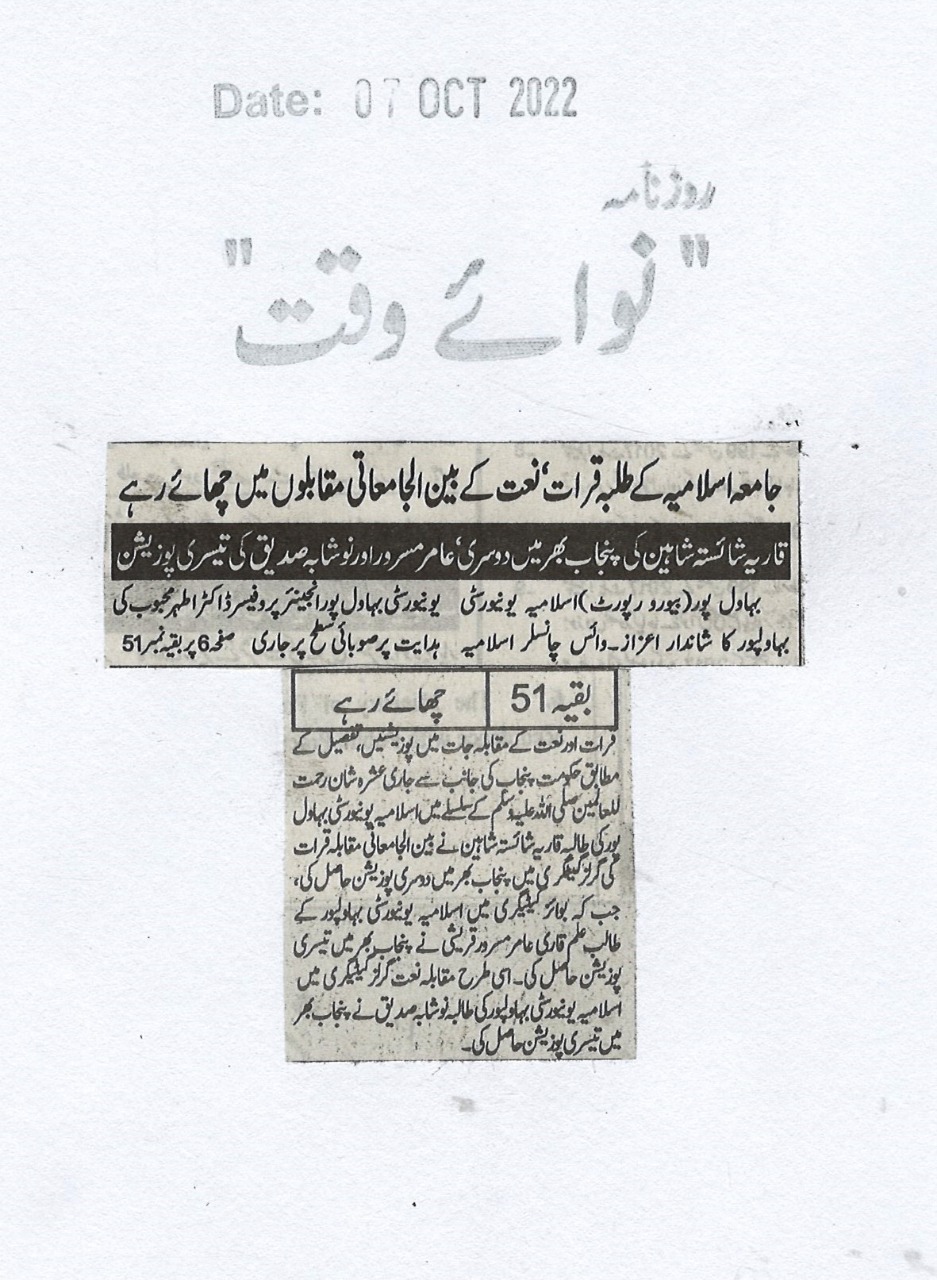 Date: 07 OCT 2022
روزنامہ
"نوائے وقت"
جامعہ اسلامیہ کے طلبہ قرات، نعت کے بین الجامعاتی مقابلوں میں چھائے رہے
قاریہ شائستہ شاہین کی پنجاب بھر میں دوسری، عامر مسرور اور نوشابہ صدیق کی تیسری پوزیشن
بہاول پور (بیورو رپورٹ) اسلامیہ یونیورسٹی
بہاولپور کا شاندار اعزاز۔ وائس چانسلر اسلامیہ
یونیورسٹی بہاول پور انجینئر پروفیسر ڈاکٹر اطہر محبوب کی
ہدایت پر صوبائی سطح پر جاری صفحہ 6 پر بقیہ نمبر 51
بقیہ 51
چھائے رہے
قرات اور نعت کے مقابلہ جات میں پوزیشنیں، تفصیل کے
مطابق حکومت پنجاب کی جانب سے جاری عشرہ شان رحمت
للعالمین صلی اللہ علیہ وسلم کے سلسلے میں اسلامیہ یونیورسٹی بہاول
پور کی طالبہ قاریہ شائستہ شاہین نے بین الجامعاتی مقابلہ قرات
کی گرلز کیٹیگری میں پنجاب بھر میں دوسری پوزیشن حاصل کی،
جب کہ بوائز کیٹیگری میں اسلامیہ یونیورسٹی بہاولپور کے
طالب علم قاری عامر مسرور قریشی نے پنجاب بھر میں تیسری
پوزیشن حاصل کی۔ اسی طرح مقابلہ نعت گرلز کیٹیگری میں
اسلامیہ یونیورسٹی بہاولپور کی طالبہ نوشابہ صدیق نے پنجاب بھر
میں تیسری پوزیشن حاصل کی۔